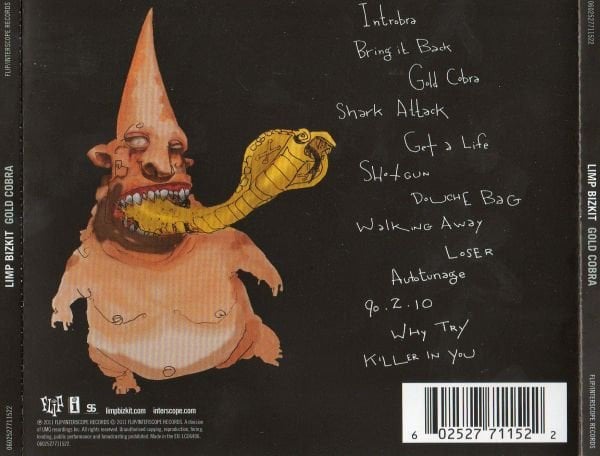 Introbra
Bring it Back
Gold Cobra
Shark Attack
Get a Life
Shotgun
Douche Bag
Walking Away
Loser
Autotunage
90.2.10
Why Try
Killer in You
FLIP/INTERSCOPE RECORDS
LIMP BIZKIT GOLD COBRA
0602527711522
0602527711522
LIMP BIZKIT GOLD COBRA
FLIP/INTERSCOPE RECORDS
FLIP i
limpbizkit.com interscope.com
℗ 2011 FLIP/INTERSCOPE RECORDS © 2011 FLIP/INTERSCOPE RECORDS. A division
of UMG recordings Inc. All rights reserved. Unauthorised copying, reproduction, hiring,
lending, public performance and broadcasting prohibited. Made in the EU. LC06406.
0602527711522.
6 02527 71152 2